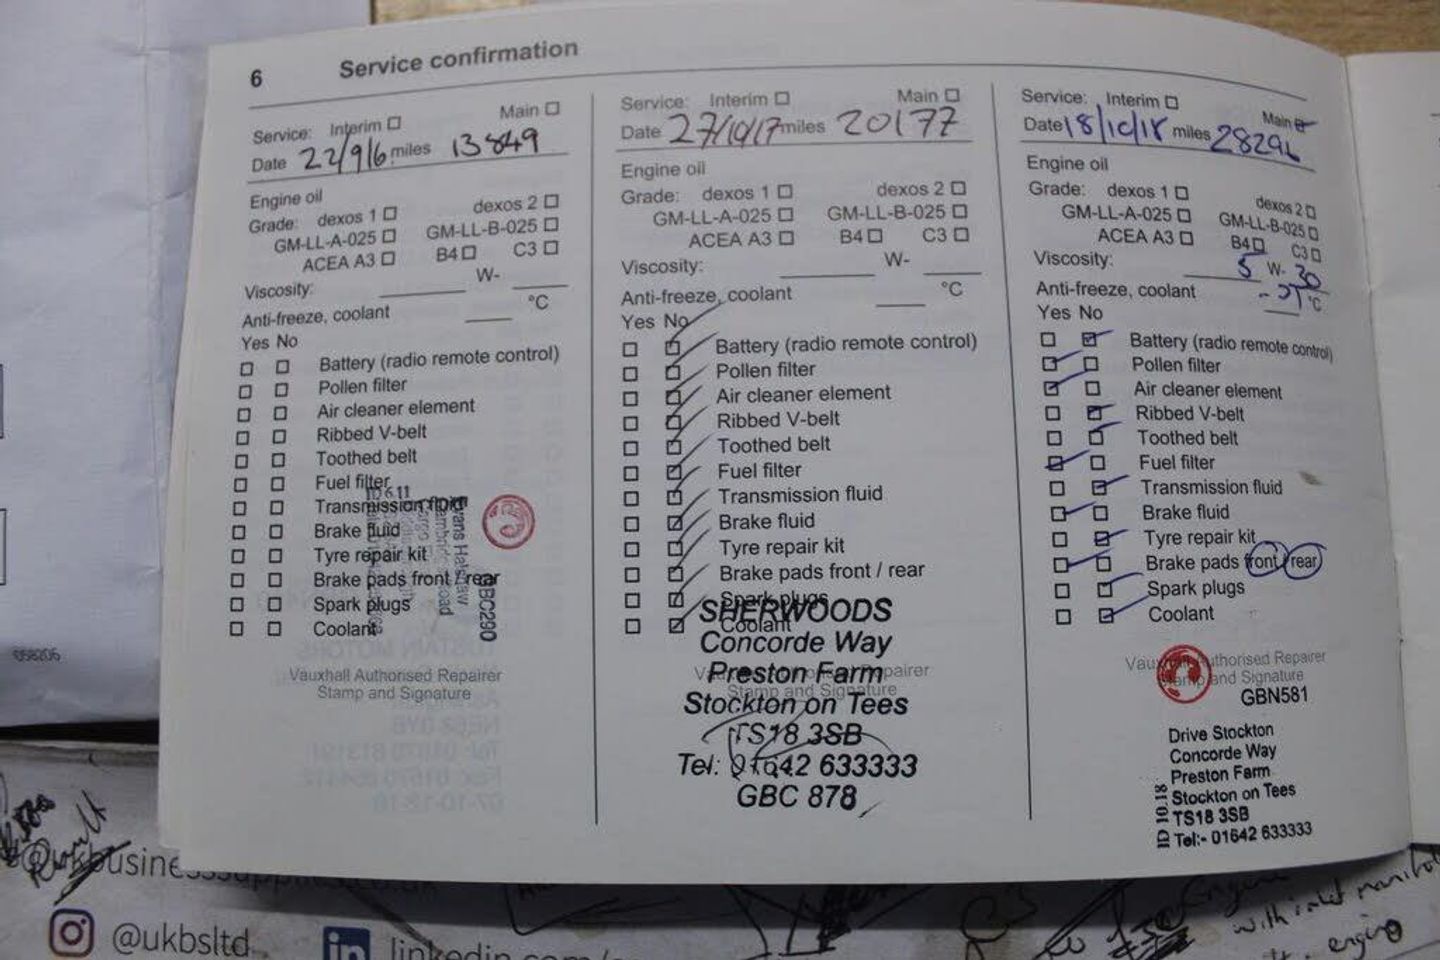 6 Service confirmation
Service: Interim Main
Date 22/9/6 miles 13849
Engine oil
Grade: dexos 1 dexos 2
GM-LL-A-025 GM-LL-B-025
ACEA A3 B4 C3
Viscosity: W-
Anti-freeze, coolant °C
Yes No
Battery (radio remote control)
Pollen filter
Air cleaner element
Ribbed V-belt
Toothed belt
Fuel filter
Transmission fluid
Brake fluid
Tyre repair kit
Brake pads front / rear
Spark plugs
Coolant
Vauxhall Authorised Repairer
Stamp and Signature
Evans Halshaw
GBC290
Service: Interim Main
Date 27/10/17 miles 20177
Engine oil
Grade: dexos 1 dexos 2
GM-LL-A-025 GM-LL-B-025
ACEA A3 B4 C3
Viscosity: W-
Anti-freeze, coolant °C
Yes No
Battery (radio remote control)
Pollen filter
Air cleaner element
Ribbed V-belt
Toothed belt
Fuel filter
Transmission fluid
Brake fluid
Tyre repair kit
Brake pads front / rear
Spark plugs
Coolant
Vauxhall Authorised Repairer
Stamp and Signature
SHERWOODS
Concorde Way
Preston Farm
Stockton on Tees
TS18 3SB
Tel: 01642 633333
GBC 878
Service: Interim Main
Date 18/10/18 miles
Engine oil
Grade: dexos 1 dexos 2
GM-LL-A-025 GM-LL-B-025
ACEA A3 B4 C3
Viscosity: 5 W- 30
Anti-freeze, coolant °C
Yes No
Battery (radio remote control)
Pollen filter
Air cleaner element
Ribbed V-belt
Toothed belt
Fuel filter
Transmission fluid
Brake fluid
Tyre repair kit
Brake pads front / rear
Spark plugs
Coolant
Vauxhall Authorised Repairer
Stamp and Signature
GBN581
Drive Stockton
Concorde Way
Preston Farm
Stockton on Tees
TS18 3SB
Tel:- 01642 633333
ID 10.18
058206
@ukbsltd
Engine
with inlet
engine